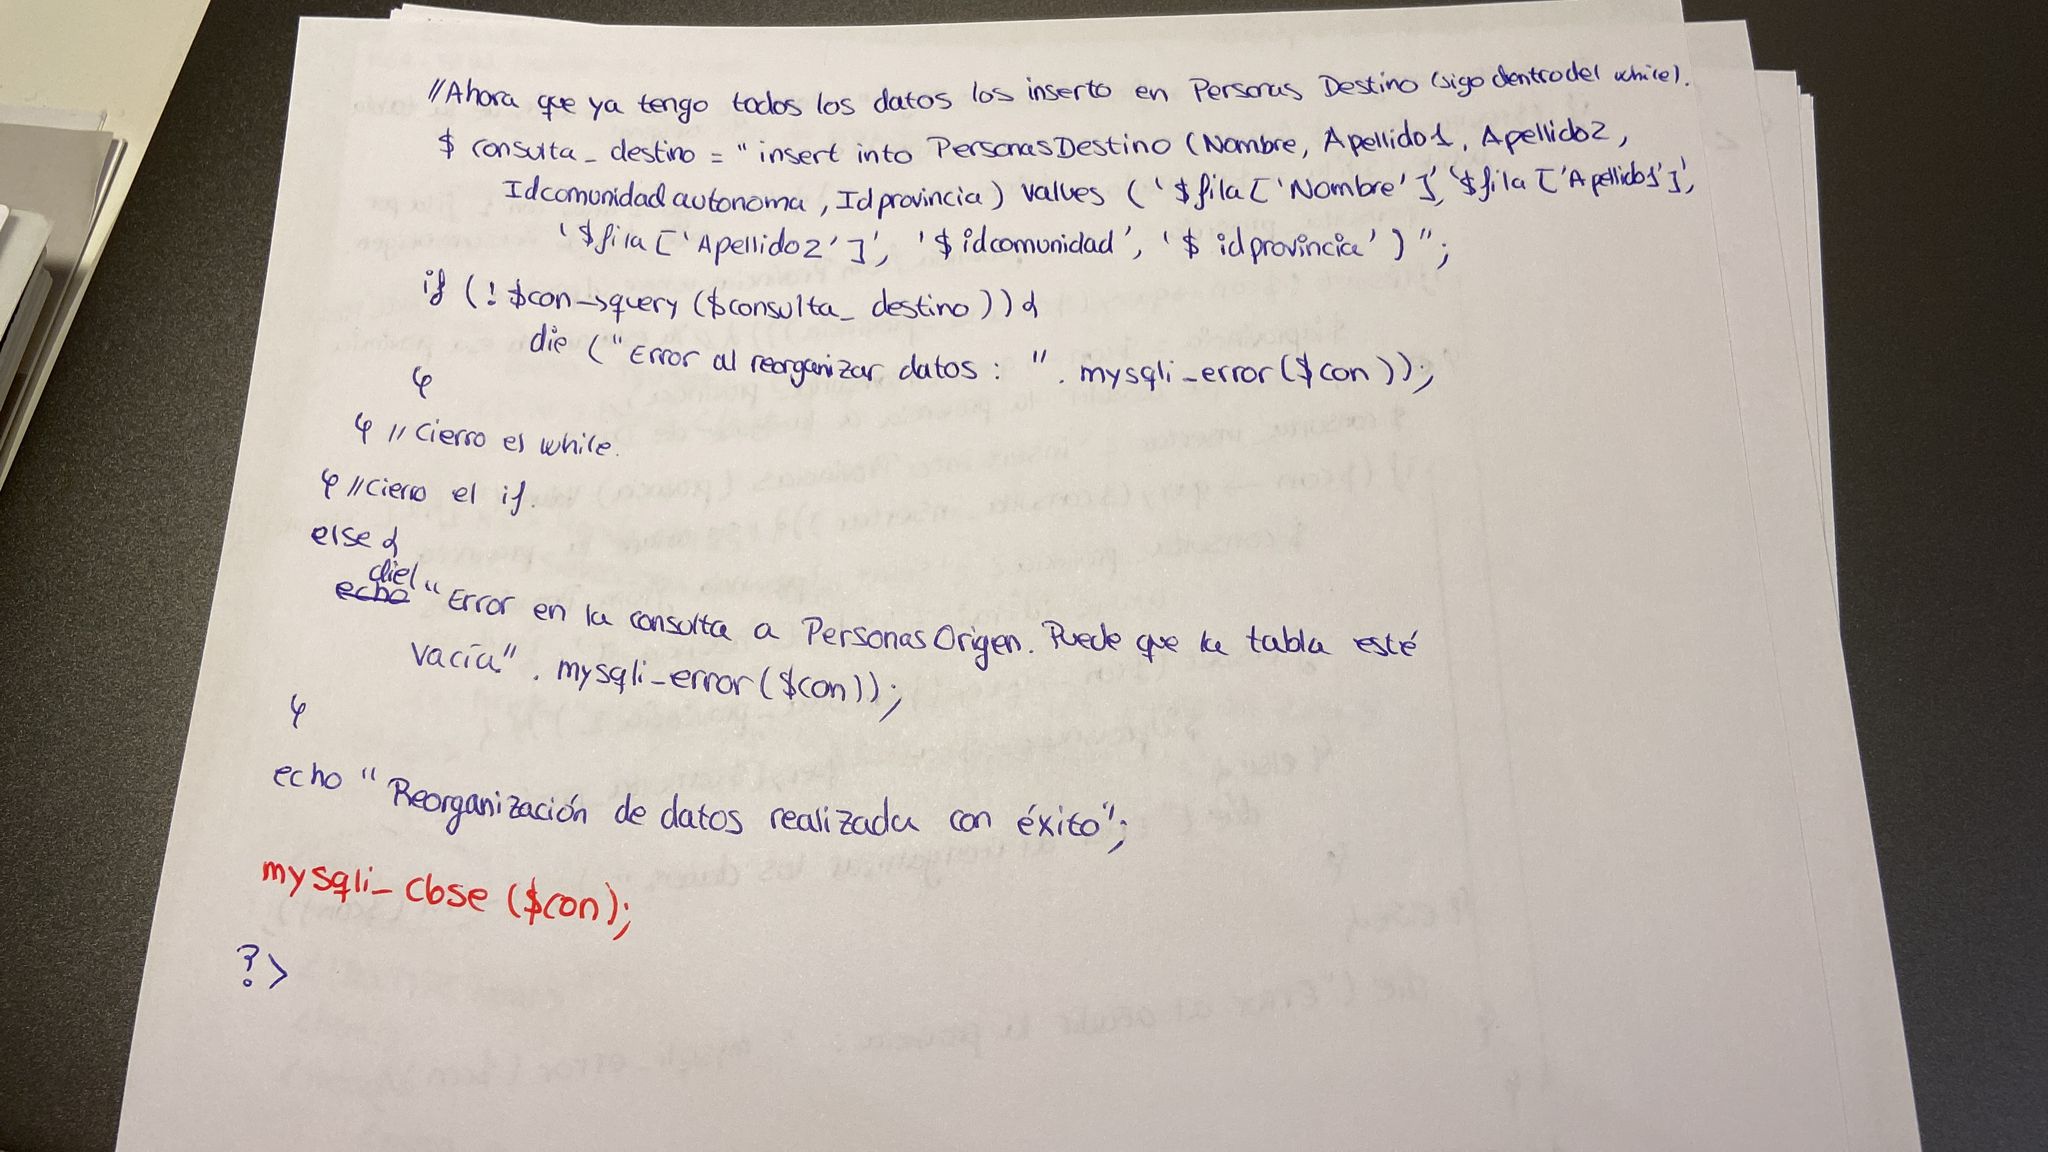 //Ahora que ya tengo todos los datos los inserto en Personas Destino (sigo dentro del while).
$ consulta_destino = "insert into PersonasDestino (Nombre, Apellido1, Apellido2,
Idcomunidadautonoma, Idprovincia) values ('$fila['Nombre']', '$fila['Apellido1']',
'$fila['Apellido2']', '$idcomunidad', '$idprovincia')";
if (!$con->query($consulta_destino)){
die ("Error al reorganizar datos: ". mysqli_error($con));
}
} //Cierro es while.
} //Cierro el if.
else {
die(
echo "Error en la consulta a PersonasOrigen. Puede que la tabla esté
vacía". mysqli_error($con));
}
echo "Reorganización de datos realizada con éxito";
mysqli_close ($con);
?>